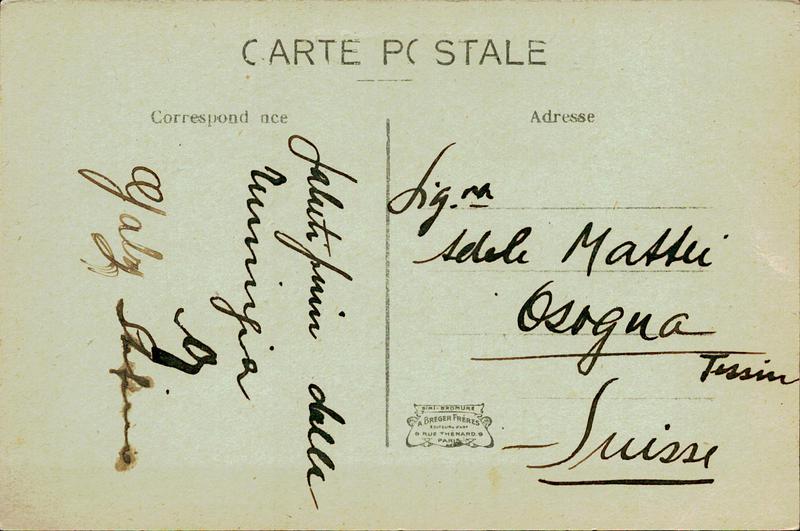 CARTE POSTALE
Correspondance
Adresse
Saluti
dalla
Sig.ra
Adele Mattei
Osogna
Tessin
Suisse
SIMI-BROMURE
A. BREGER FRÈRES
ÉDITEURS D'ART
9 RUE THÉNARD.9
PARIS